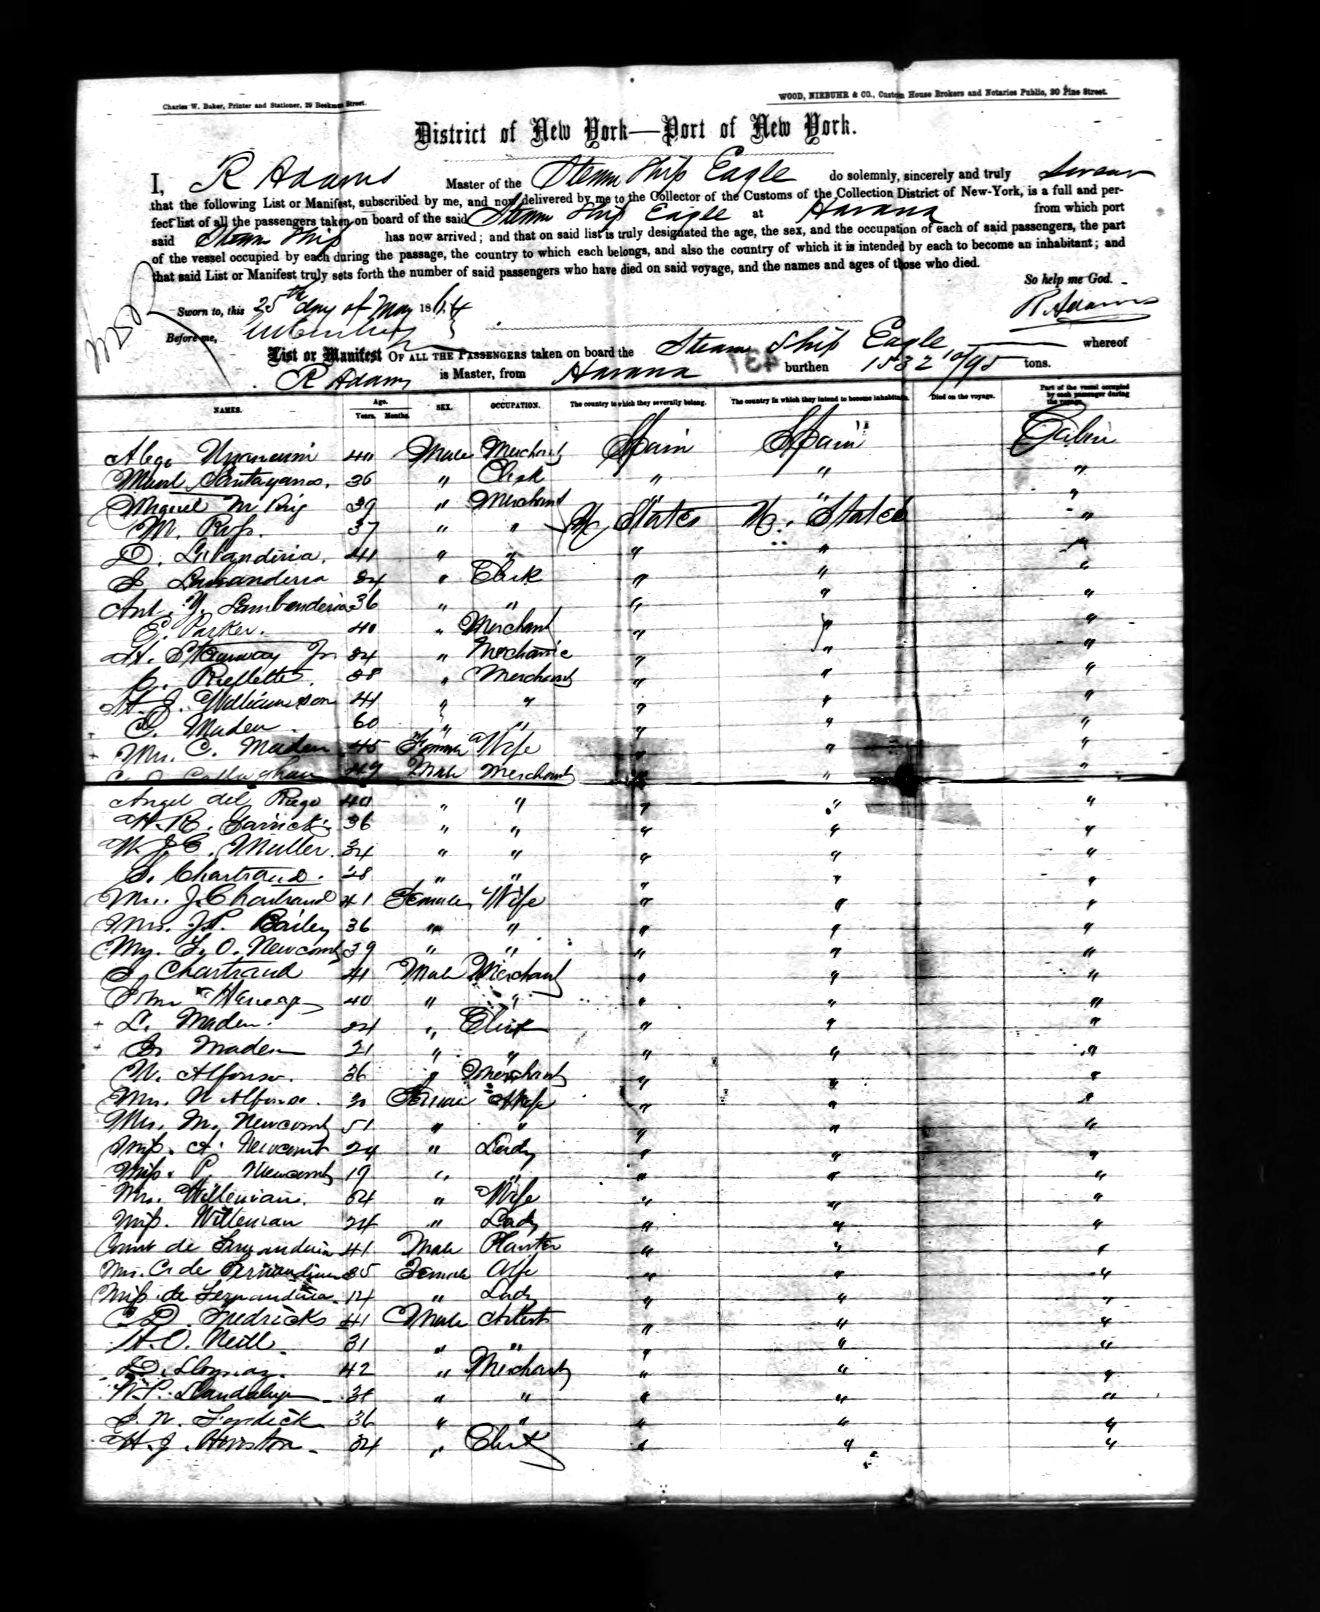 Charles W. Baker, Printer and Stationer, 29 Beekman Street.
WOOD, NIEBUHR & CO., Custom House Brokers and Notaries Public, 20 Pine Street.
District of New York—Port of New York.
I, R Adams Master of the Steam Ship Eagle do solemnly, sincerely and truly Swear
that the following List or Manifest, subscribed by me, and now delivered by me to the Collector of the Customs of the Collection District of New-York, is a full and per-
fect list of all the passengers taken on board of the said Steam Ship Eagle at Havana from which port
said Steam Ship has now arrived; and that on said list is truly designated the age, the sex, and the occupation of each of said passengers, the part
of the vessel occupied by each during the passage, the country to which each belongs, and also the country of which it is intended by each to become an inhabitant; and
that said List or Manifest truly sets forth the number of said passengers who have died on said voyage, and the names and ages of those who died.
So help me God.
Sworn to, this 25th day of May 1864 R Adams
Before me,
List or Manifest OF ALL THE PASSENGERS taken on board the Steam Ship Eagle whereof
R Adams is Master, from Havana burthen 1532 10/95 tons.
437
NAMES. Age. Years. Months. SEX. OCCUPATION. The country to which they severally belong. The country in which they intend to become inhabitants. Died on the voyage. Part of the vessel occupied by each passenger during the voyage.
40 Male Merchant Spain Spain Cabin
Santayana. 36 " Clerk " " "
Miguel 39 " Merchant " " "
M. 37 " " U States U. States "
D. 41 " " " " "
S 24 " Clerk " " "
Ant. 36 " " " " "
E. Parker. 40 " Merchant " " "
Jr 24 " Mechanic " " "
C. 28 " Merchant " " "
H. J. Williamson 41 " " " " "
C. Maden 60 " " " " "
Mrs. C. Maden 45 Female Wife " " "
49 Male Merchant " " "
Angel del Rugo 40 " " " " "
H. R. 36 " " " " "
W. J. C. Muller. 34 " " " " "
S. Chartrand. 28 " " " " "
Mrs. J. Chartrand 41 Female Wife " " "
Mrs. J. P. Bailey 36 " " " " "
O. Newcomb 39 " " " " "
Chartrand 41 Male Merchant " " "
John 40 " " " " "
L. Maden. 24 " Clerk " " "
Maden 21 " " " " "
N. Alfonso. 36 " Merchant " " "
Mrs. N Alfonso. 30 Female Wife " " "
Mrs. M. Newcomb 51 " " " " "
Miss. A. Newcomb 24 " Lady " " "
Miss. P. Newcomb 19 " " " " "
Mrs. Willemian. 54 " Wife " " "
Miss. Willemian 24 " Lady " " "
Count de Fernandina 41 Male Planter " " "
Mrs. C. de Fernandina 35 Female Wife " " "
Miss. de Fernandina. 14 " Lady " " "
C. D. Fredricks 41 Male Artist " " "
H. O. Neill. 31 " " " " "
D. 42 " Merchant " " "
W. P. 38 " " " " "
36 " " " " "
H. J. Houston 34 " Clerk " " "